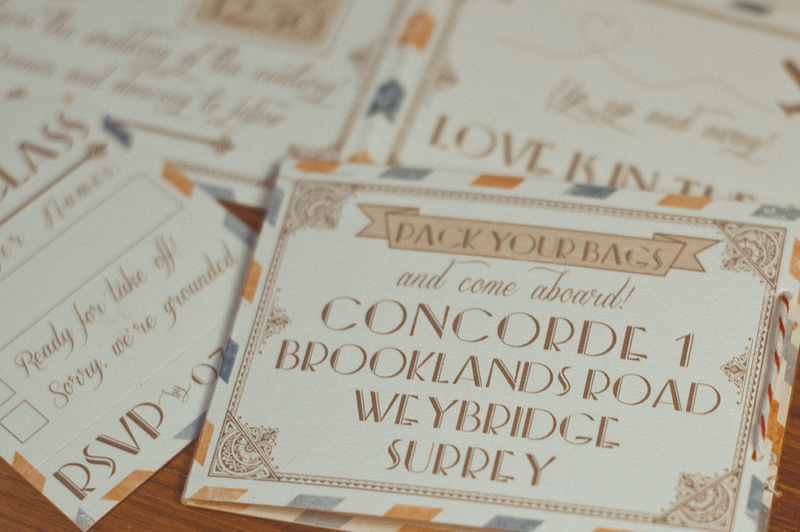 the wedding of the century!
and dancing to follow
Up, up and away!
LOVE IS IN THE
CLASS
Ready for take off!
Sorry, we're grounded
RSVP by 07
PACK YOUR BAGS
and come aboard!
CONCORDE 1
BROOKLANDS ROAD
WEYBRIDGE
SURREY